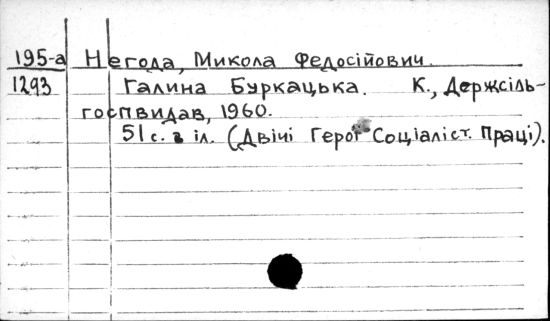 195-а Негода, Микола Федосійович.
1293 Галина Буркацька. К., Держсіль-
госпвидав, 1960.
51 с. з іл. (Двічі Герої Соціаліст. Праці).